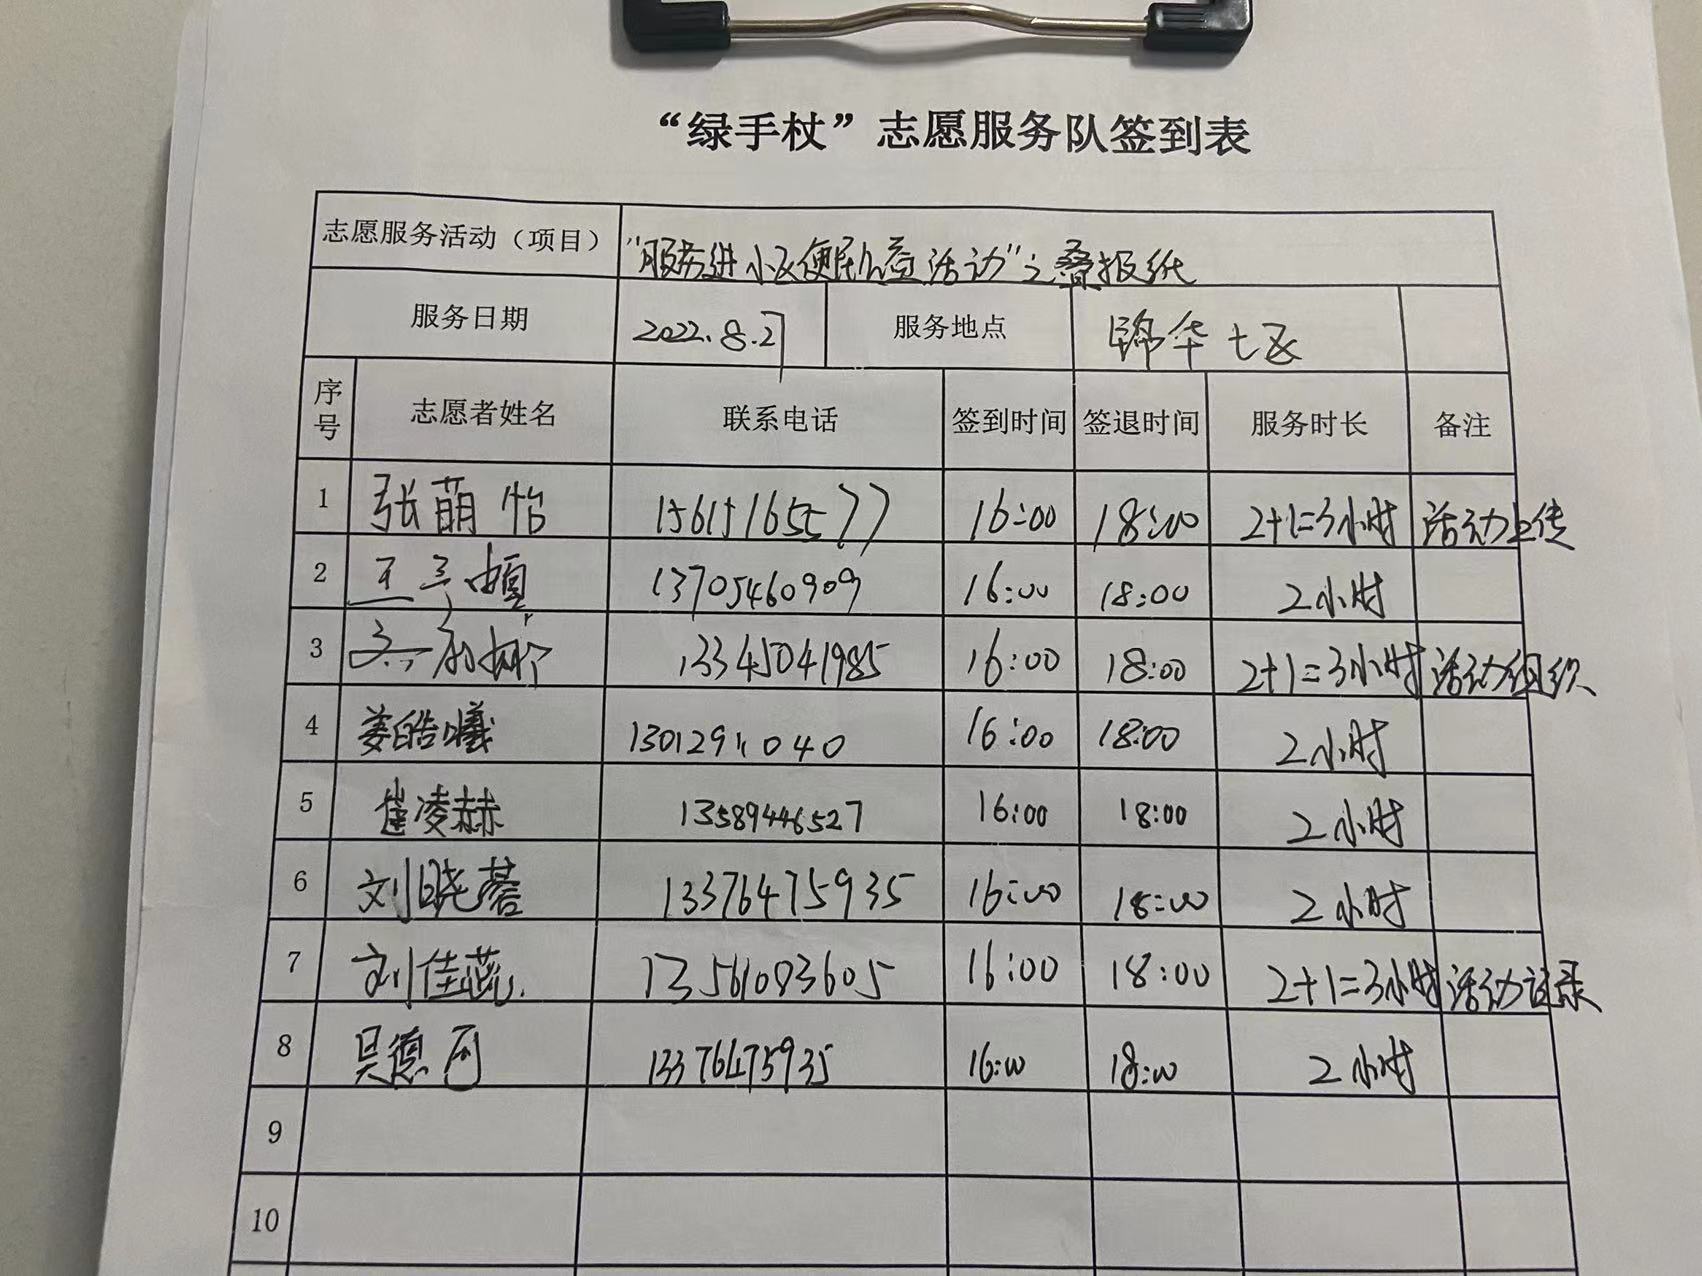 “绿手杖”志愿服务队签到表
志愿服务活动（项目） “服务进小区便民公益活动”之叠报纸
服务日期 2022.8.27 服务地点 锦华七区
序号 志愿者姓名 联系电话 签到时间 签退时间 服务时长 备注
1 张萌怡 15615165577 16:00 18:00 2+1=3小时 活动上传
2 13705460909 16:00 18:00 2小时
3 13345041985 16:00 18:00 2+1=3小时 活动组织
4 姜皓曦 16:00 18:00 2小时
5 崔凌赫 13589446527 16:00 18:00 2小时
6 刘晓蓉 13376475935 16:00 18:00 2小时
7 刘佳蕊 13561083605 16:00 18:00 2+1=3小时 活动记录
8 13376475935 16:00 18:00 2小时
9
10